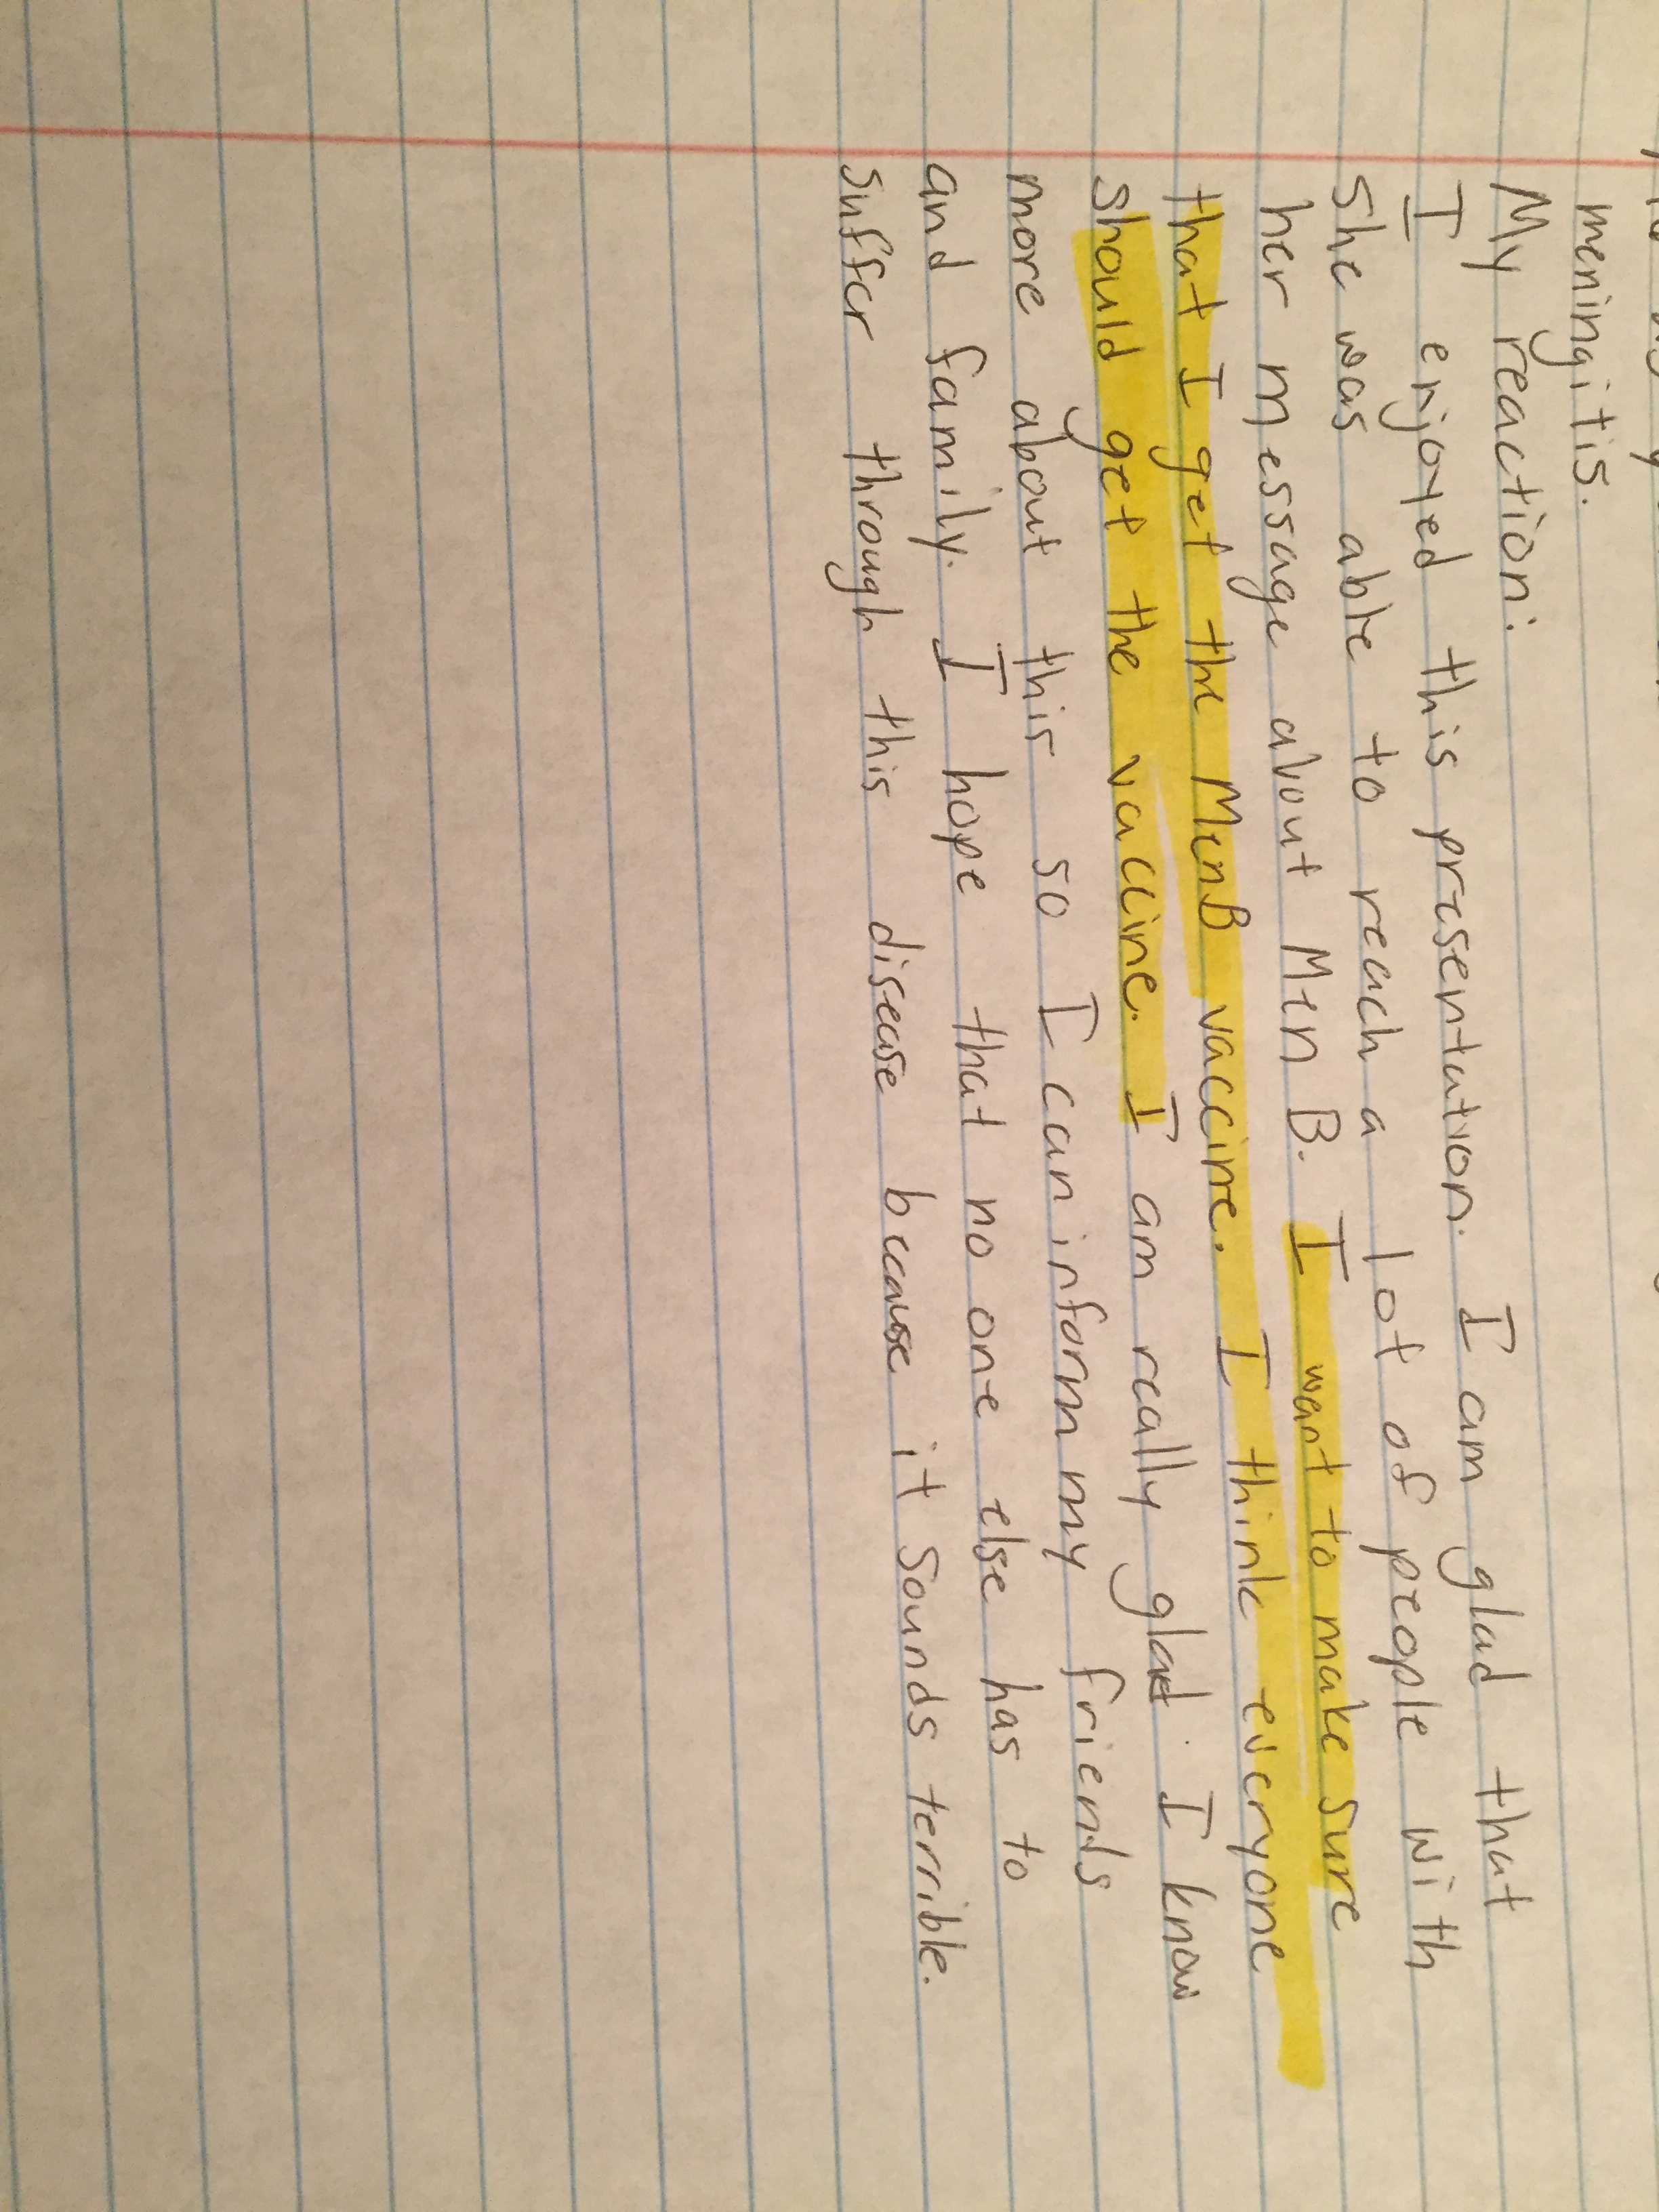 meningitis.
My reaction:
I enjoyed this presentation. I am glad that
she was able to reach a lot of people with
her message about Men B. I want to make sure
that I get the MenB vaccine. I think everyone
should get the vaccine. I am really glad I know
more about this so I can inform my friends
and family. I hope that no one else has to
suffer through this disease because it sounds terrible.